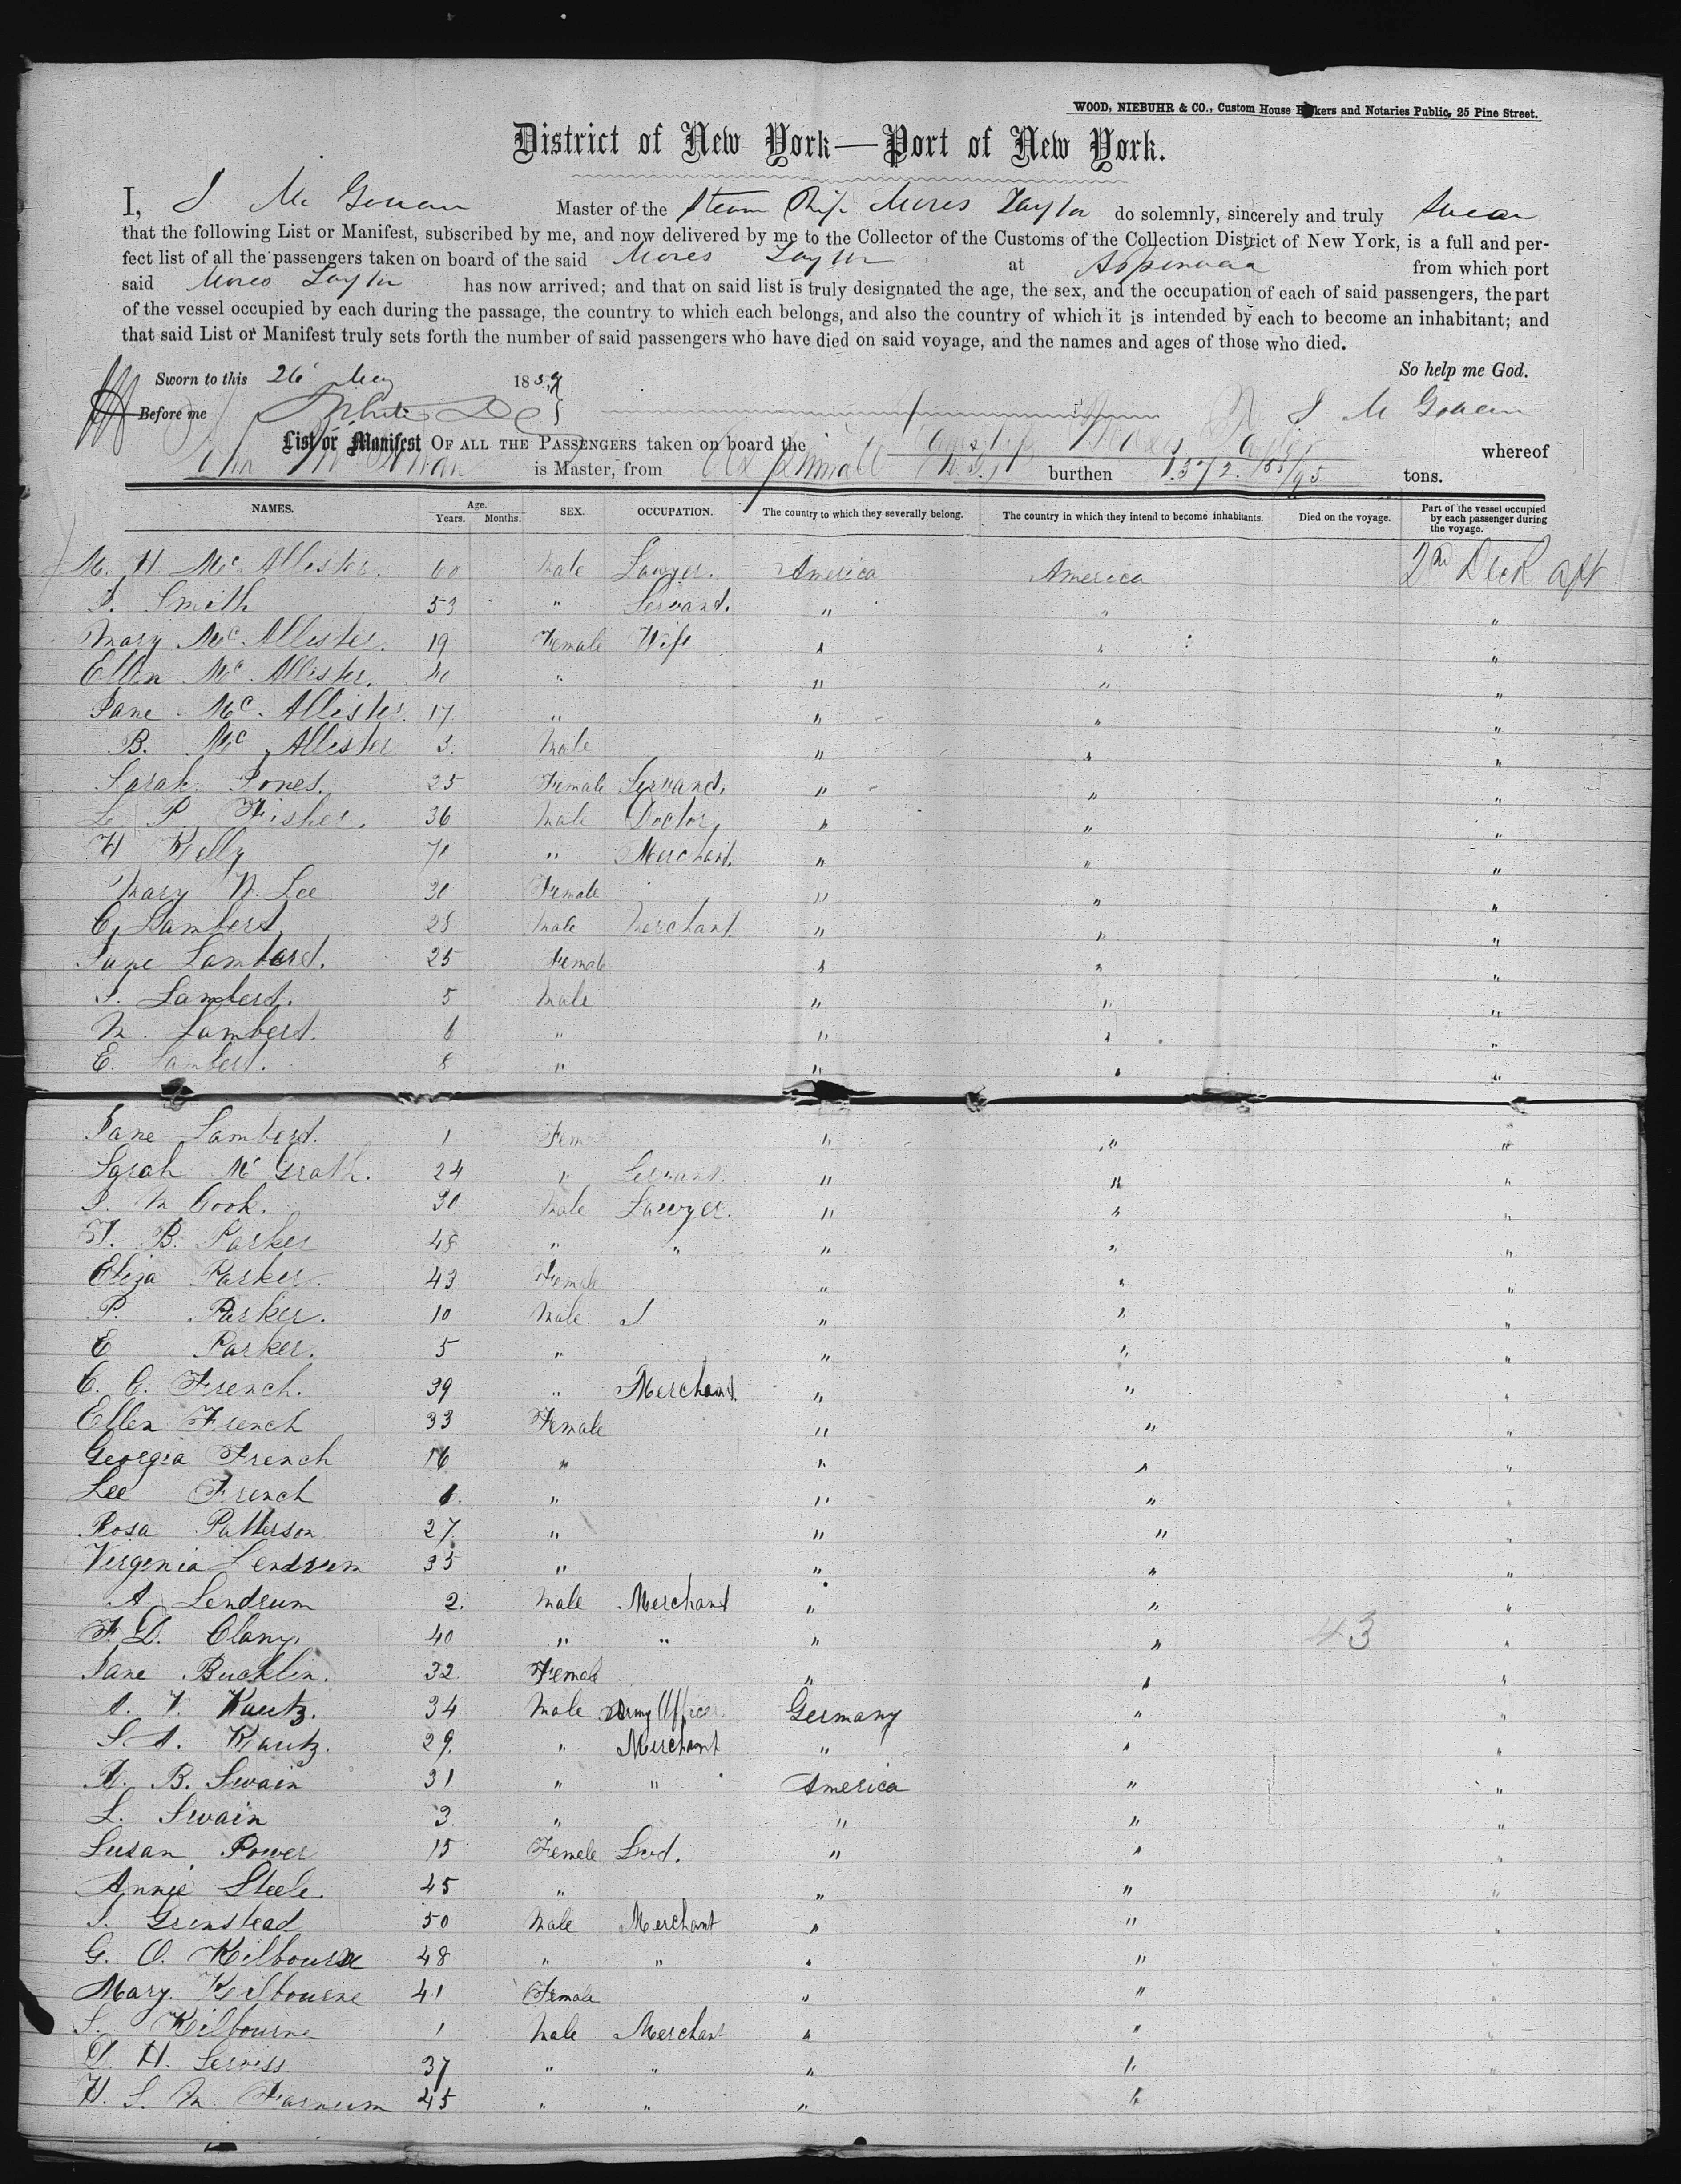 WOOD, NIEBUHR & CO., Custom House Brokers and Notaries Public, 25 Pine Street.
District of New York—Port of New York.
I, J Mc Gowan Master of the Steam Ship Moses Taylor do solemnly, sincerely and truly swear
that the following List or Manifest, subscribed by me, and now delivered by me to the Collector of the Customs of the Collection District of New York, is a full and per-
fect list of all the passengers taken on board of the said Moses Taylor at Aspinwall from which port
said Moses Taylor has now arrived; and that on said list is truly designated the age, the sex, and the occupation of each of said passengers, the part
of the vessel occupied by each during the passage, the country to which each belongs, and also the country of which it is intended by each to become an inhabitant; and
that said List or Manifest truly sets forth the number of said passengers who have died on said voyage, and the names and ages of those who died.
So help me God.
Sworn to this 26 May 1859
Before me J White J Mc Gowan
List or Manifest OF ALL THE PASSENGERS taken on board the Steamship Moses Taylor whereof
John Mc Gowan is Master, from Aspinwall N.G. burthen 1.372.55/95 tons.
NAMES. Age. Years. Months. SEX. OCCUPATION. The country to which they severally belong. The country in which they intend to become inhabitants. Died on the voyage. Part of the vessel occupied by each passenger during the voyage.
M. H. Mc Allister. 60 Male Lawyer. America America 2nd Deck aft
J. Smith 53 " Servant. " " "
Mary Mc Allister. 19 Female Wife " " "
Ellen Mc Allister. 40 " " " "
Jane Mc Allister. 17 " " " "
B. Mc Allister 3. Male " " "
Sarah Jones. 25 Female Servant. " " "
L. P. Fisher. 36 Male Doctor " " "
H Kelly 70 " Merchant. " " "
Mary N. Lee 30 Female " " "
C. Lambert 28 Male Merchant. " " "
Jane Lambert. 25 Female " " "
J. Lambert. 5 Male " " "
M. Lambert. 6 " " " "
E. Lambert. 8 " " " "
Jane Lambert. 1 Fem " " "
Sarah Mc Grath. 24 " Servant. " " "
J. M Cook. 30 Male Lawyer. " " "
F. B. Parker 48 " " " " "
Eliza Parker. 43 Female " " "
P. Parker. 10 Male J " " "
E Parker. 5 " " " "
C. C. French. 39 " Merchant. " " "
Ellen French 33 Female " " "
Georgia French 16 " " " "
Lee French 1. " " " "
Rosa Patterson 27. " " " "
Virginia Lendrum 35 " " " "
A. Lendrum 2. Male Merchant " " "
F. D. Clany. 40 " " " " 43 "
Jane Bucklin. 32. Female " " "
A. V. Kautz. 34 Male Army Officer Germany " "
S A. Kautz. 29. " Merchant " " "
R. B. Swain 31 " " America " "
L. Swain 3. " " " "
Susan Power 15 Female Svd. " " "
Annie Steele. 45 " " " "
J. Grinstead 50 Male Merchant " " "
G. O. Kilbourne 48 " " " " "
Mary. Kilbourne 41 Female " " "
S. Kilbourne 1 Male Merchant " " "
D. H. Serviss 37 " " " " "
H. S. M. Farnum 45 " " " "